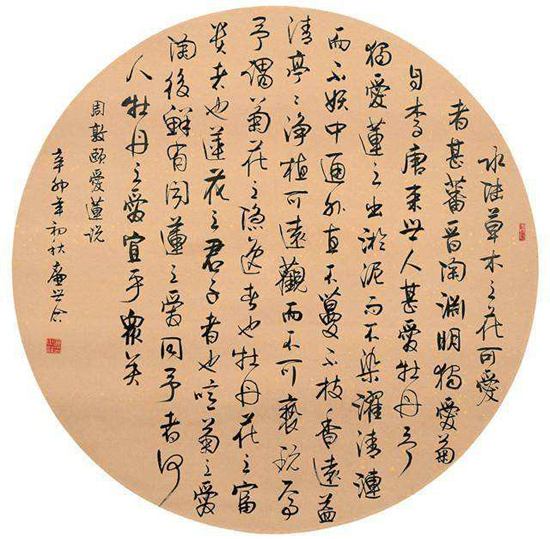 水陸草木之花可愛
者甚蕃晉陶淵明獨愛菊
自李唐来世人甚愛牡丹予
獨愛蓮之出淤泥而不染濯清漣
而不妖中通外直不蔓不枝香遠益
清亭々淨植可遠觀而不可褻玩焉
予謂菊花之隐逸者也牡丹花之富
貴者也蓮花之君子者也噫菊之愛
陶後鮮有聞蓮之愛同予者何
人牡丹之愛宜乎衆矣
周敦頤愛蓮說
辛卯年初秋